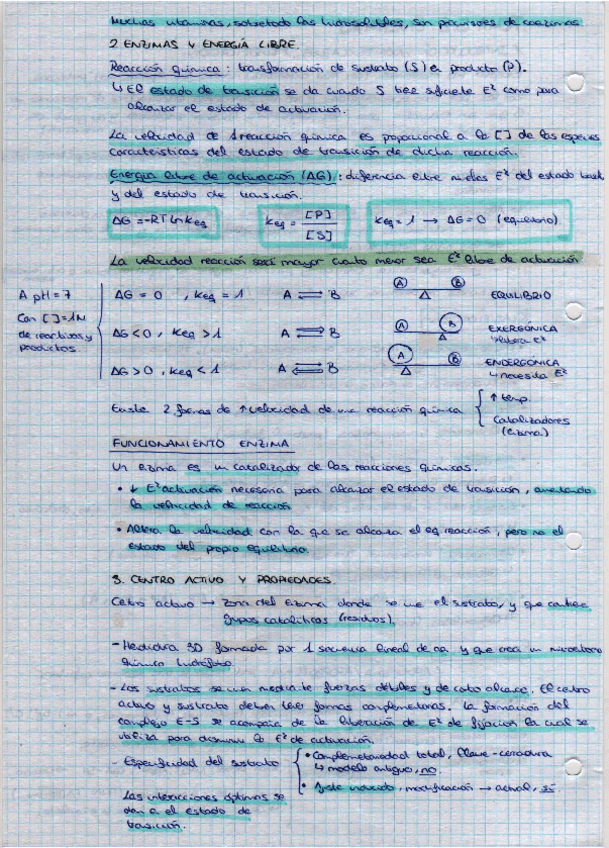 Muchas vitaminas, sobretodo las hidrosolubles, son precursores de coenzimas
2. ENZIMAS Y ENERGÍA LIBRE.
Reacción química: transformación de sustrato (S) en producto (P).
↳ El estado de transición se da cuando S tiene suficiente Eª como para
alcanzar el estado de activación.
La velocidad de 1 reacción química es proporcional a la [ ] de las especies
características del estado de transición de dicha reacción.
Energía libre de activación (ΔG): diferencia entre niveles Eª del estado basal
y del estado de transición.
ΔG = -RT Ln Keq
Keq = [P] / [S]
Keq = 1 → ΔG = 0 (equilibrio)
La velocidad reacción será mayor cuanto menor sea Eª libre de activación
A pH = 7
Con [ ] = 1N
de reactivos y
productos.
ΔG = 0 , Keq = 1 A ⇌ B A B Δ EQUILIBRIO
ΔG < 0 , Keq > 1 A ⇌ B A B Δ EXERGÓNICA
↳ libera Eª
ΔG > 0 , Keq < 1 A ⇌ B A B Δ ENDERGÓNICA
↳ necesita Eª
Existe 2 formas de ↑ velocidad de una reacción química { ↑ temp.
Catalizadores
(enzima)
FUNCIONAMIENTO ENZIMA
Un enzima es un catalizador de las reacciones químicas.
• ↓ Eª activación necesaria para alcanzar el estado de transición, aumentando
la velocidad de reacción
• Altera la velocidad con la que se alcanza el eq. reacción, pero no el
estado del propio equilibrio.
3. CENTRO ACTIVO Y PROPIEDADES
Centro activo → Zona del enzima donde se une el sustrato, y que contiene
grupos catalíticos (residuos).
- Hendidura 3D formada por 1 secuencia lineal de aa y que crea un microentorno
químico hidrófobo.
- Los sustratos se unen mediante fuerzas débiles y de corto alcance. El centro
activo y sustrato deben tener formas complementarias. La formación del
complejo E-S se acompaña de la liberación de Eª de fijación la cual se
utiliza para disminuir la Eª de activación.
- Especificidad del sustrato { • Complementariedad total, llave-cerradura
↳ modelo antiguo, no
• Ajuste inducido, modificación → actual, sí
Las interacciones óptimas se
dan en el estado de
transición.